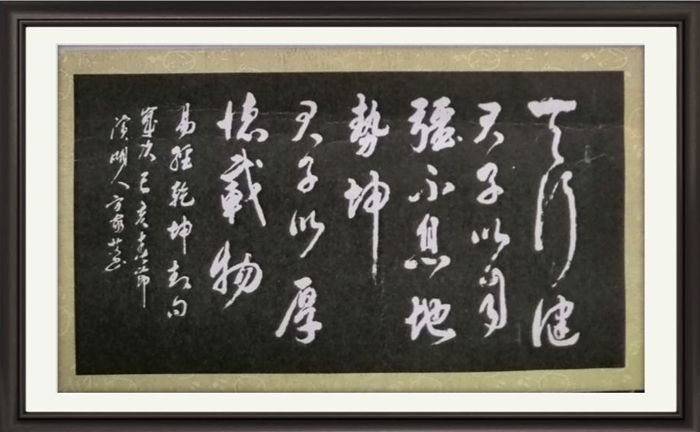 天行健
君子以自
强不息地
势坤
君子以厚
德载物
易经乾坤卦句
岁次己亥春节
溪湖人方家